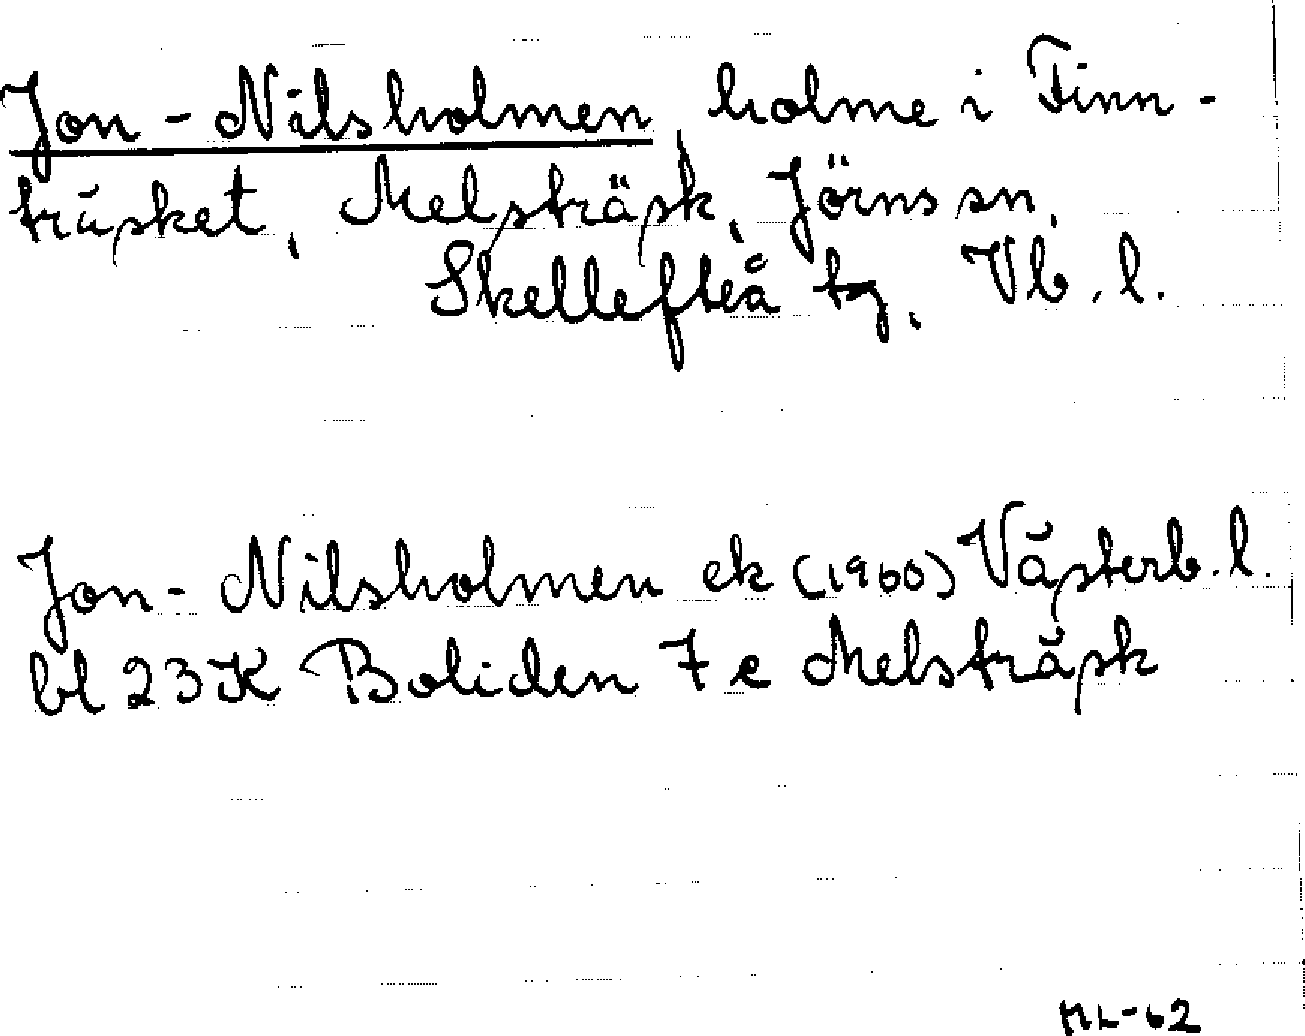 Jon-Nilsholmen, holme i Finn-
träsket, Melsträsk, Jörns sn,
Skellefteå tg, Vb. l.
Jon-Nilsholmen ek (1960) Västerb. l.
bl 23K Boliden 7 e Melsträsk
ML-62